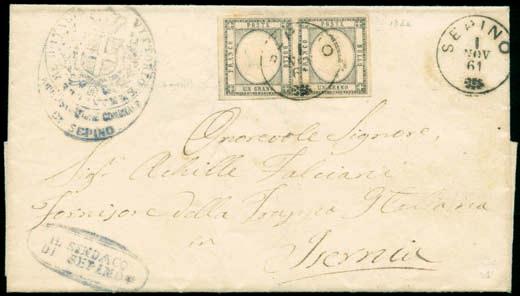 DI SEPINO
FRANCO POSTA BOLLO UN GRANO
FRANCO POSTA BOLLO UN GRANO
SEPINO
1
NOV
61
Onorevole Signore,
Sig.r Achille Falciani
Fornisore della Truppa Italiana
in
Isernia
IL SINDACO
DI SEPINO